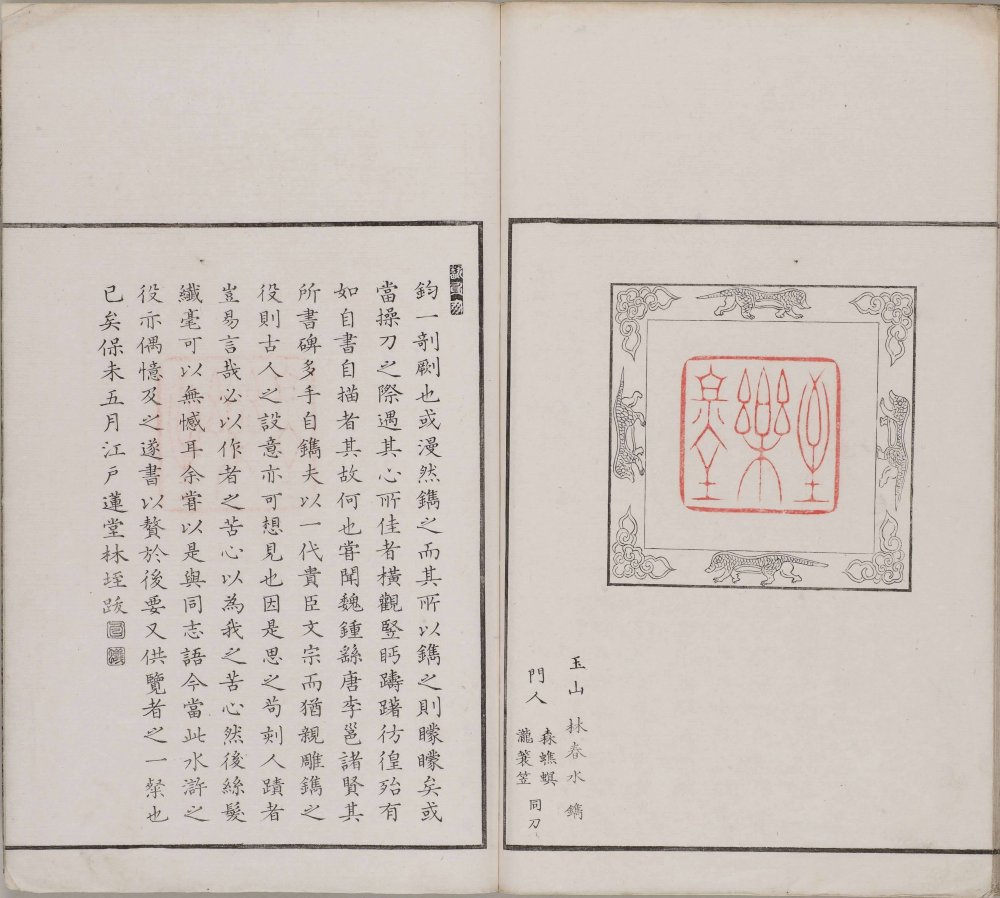 玉山 林春水 鐫
門人
森蟭螟
瀧簑笠
同刀
鈞一剞劂也或漫然鐫之而其所以鐫之則矇矇矣或
當操刀之際遇其心所佳者橫觀竪眄躊躇彷徨殆有
如自書自描者其故何也甞聞魏鍾繇唐李邕諸賢其
所書碑多手自鐫夫以一代貴臣文宗而猶親雕鐫之
役則古人之設意亦可想見也因是思之茍刻人蹟者
豈易言哉必以作者之苦心以為我之苦心然後絲髮
纖毫可以無憾耳余甞以是與同志語今當此水滸之
役亦偶憶及之遂書以贅於後要又供覽者之一粲也
已矣保未五月江戶蓮堂林垤跋